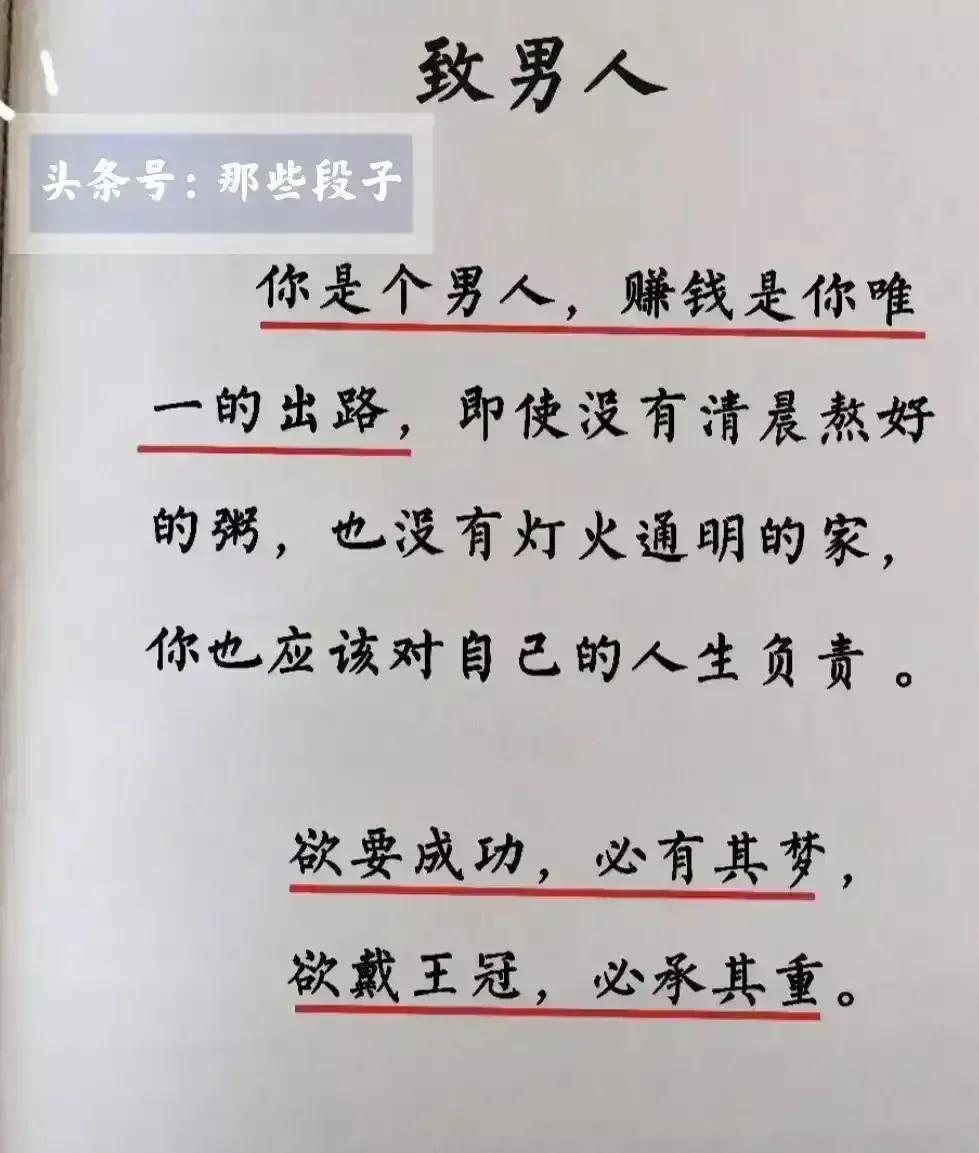 致男人
头条号：那些段子
你是个男人，赚钱是你唯
一的出路，即使没有清晨熬好
的粥，也没有灯火通明的家，
你也应该对自己的人生负责。
欲要成功，必有其梦，
欲戴王冠，必承其重。